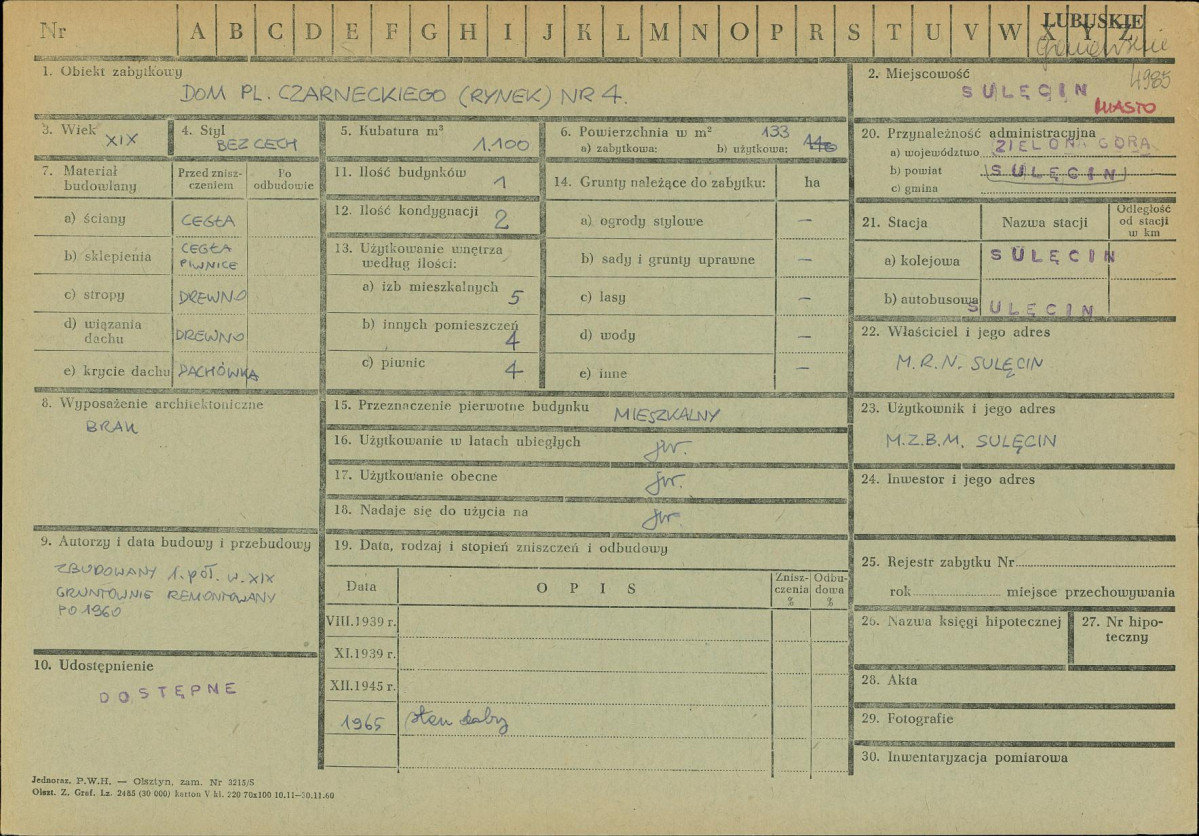 Nr A B C D E F G H I J K L M N O P R S T U V W X Y Z
LUBUSKIE
4985
1. Obiekt zabytkowy
DOM PL. CZARNECKIEGO (RYNEK) NR 4.
2. Miejscowość
SULĘCIN
MIASTO
3. Wiek
XIX
4. Styl
BEZ CECH
5. Kubatura m³
1.100
6. Powierzchnia w m² 133
a) zabytkowa: b) użytkowa:
7. Materiał budowlany
Przed znisz-
czeniem
Po
odbudowie
a) ściany CEGŁA
b) sklepienia CEGŁA
PIWNICE
c) stropy DREWNO
d) wiązania
dachu DREWNO
e) krycie dachu DACHÓWKA
8. Wyposażenie architektoniczne
BRAK
9. Autorzy i data budowy i przebudowy
ZBUDOWANY 1. PÓŁ. W. XIX
GRUNTOWNIE REMONTOWANY
PO 1960
10. Udostępnienie
DOSTĘPNE
11. Ilość budynków 1
12. Ilość kondygnacji 2
13. Użytkowanie wnętrza
według ilości:
a) izb mieszkalnych 5
b) innych pomieszczeń 4
c) piwnic 4
14. Grunty należące do zabytku: ha
a) ogrody stylowe —
b) sady i grunty uprawne —
c) lasy —
d) wody —
e) inne —
15. Przeznaczenie pierwotne budynku MIESZKALNY
16. Użytkowanie w latach ubiegłych jw.
17. Użytkowanie obecne jw.
18. Nadaje się do użycia na jw.
19. Data, rodzaj i stopień zniszczeń i odbudowy
Data OPIS Znisz-
czenia
% Odbu-
dowa
%
VIII.1939 r.
XI.1939 r.
XII.1945 r.
1965 stan dobry
20. Przynależność administracyjna
a) województwo ZIELONA GÓRA
b) powiat SULĘCIN
c) gmina
21. Stacja Nazwa stacji Odległość
od stacji
w km
a) kolejowa SULĘCIN
b) autobusowa SULĘCIN
22. Właściciel i jego adres
M.R.N. SULĘCIN
23. Użytkownik i jego adres
M.Z.B.M. SULĘCIN
24. Inwestor i jego adres
25. Rejestr zabytku Nr
rok miejsce przechowywania
26. Nazwa księgi hipotecznej
27. Nr hipo-
teczny
28. Akta
29. Fotografie
30. Inwentaryzacja pomiarowa
Jednoraz. P.W.H. — Olsztyn, zam. Nr 3215/S
Olszt. Z. Graf. Lz. 2485 (30 000) karton V kl. 220 70x100 10.11—30.11.60